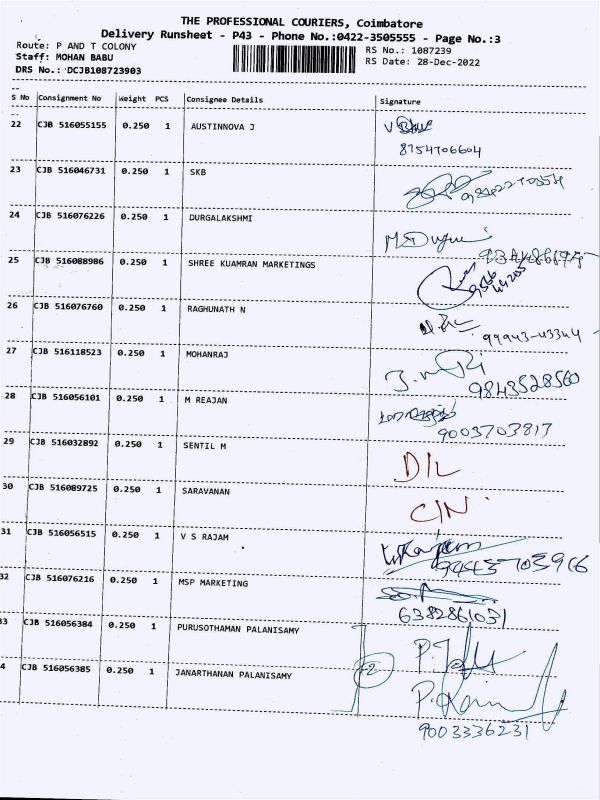 THE PROFESSIONAL COURIERS, Coimbatore
Delivery Runsheet - P43 - Phone No.:0422-3505555 - Page No.:3
Route: P AND T COLONY
RS No.: 1087239
Staff: MOHAN BABU
RS Date: 28-Dec-2022
DRS No.: DCJB108723903
S No Consignment No Weight PCS Consignee Details Signature
22 CJB 516055155 0.250 1 AUSTINNOVA J
8754706604
23 CJB 516046731 0.250 1 SKB
24 CJB 516076226 0.250 1 DURGALAKSHMI
25 CJB 516088986 0.250 1 SHREE KUAMRAN MARKETINGS
26 CJB 516076760 0.250 1 RAGHUNATH N
99943-43344
27 CJB 516118523 0.250 1 MOHANRAJ
9843528560
28 CJB 516056101 0.250 1 M REAJAN
9003703817
29 CJB 516032892 0.250 1 SENTIL M
D/L
30 CJB 516089725 0.250 1 SARAVANAN
C/N
31 CJB 516056515 0.250 1 V S RAJAM
32 CJB 516076216 0.250 1 MSP MARKETING
6382861031
33 CJB 516056384 0.250 1 PURUSOTHAMAN PALANISAMY
4 CJB 516056385 0.250 1 JANARTHANAN PALANISAMY
9003336231